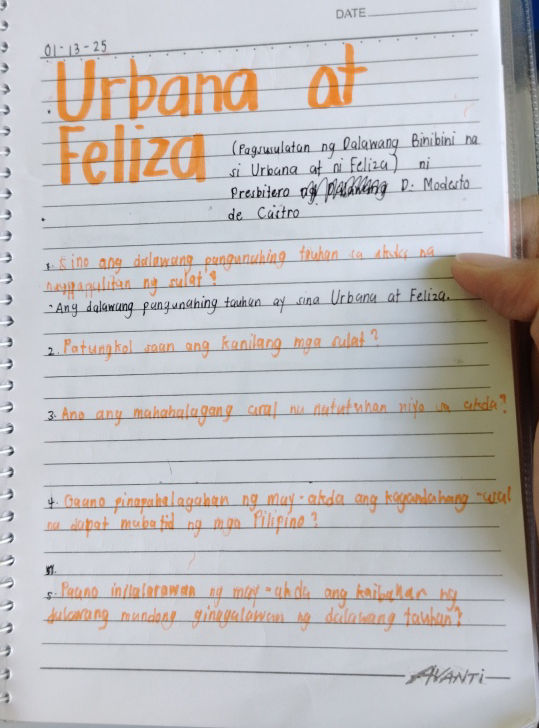 DATE
01-13-25
Urbana at
Feliza
(Pagsusulatan ng Dalawang Binibini na
si Urbana at ni Feliza) ni
Presbitero D. Modesto
de Castro
1. Sino ang dalawang pangunahing tauhan sa akda na
nagpapalitan ng sulat?
- Ang dalawang pangunahing tauhan ay sina Urbana at Feliza.
2. Patungkol saan ang kanilang mga sulat?
3. Ano ang mahahalagang aral na natutuhan niyo sa akda?
4. Gaano pinapahalagahan ng may-akda ang kagandahang-asal
na dapat mabatid ng mga Pilipino?
5. Paano inilalarawan ng may-akda ang kaibahan ng
dalawang mundong ginagalawan ng dalawang tauhan?
AVANTi